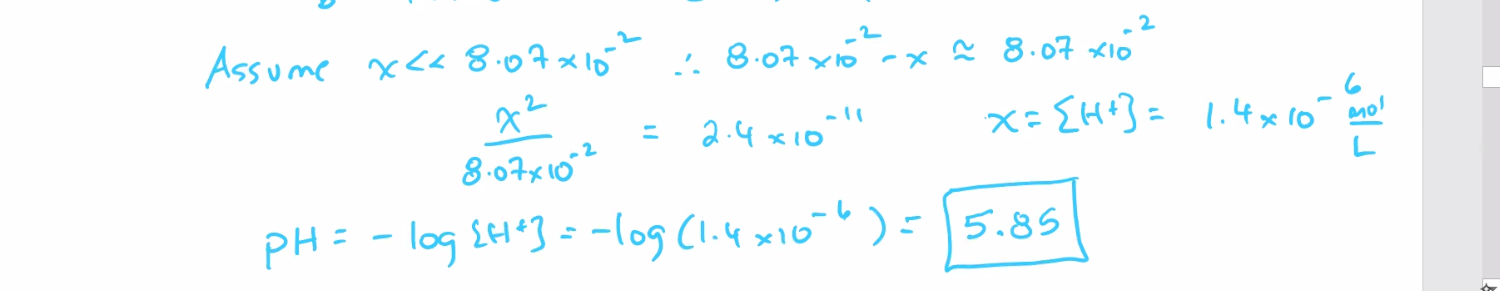 Assume x<< 8.07×10⁻² ∴ 8.07×10⁻² - x ≈ 8.07×10⁻²
x² / 8.07×10⁻² = 2.4×10⁻¹¹ x = {H⁺} = 1.4×10⁻⁶ mol/L
pH = - log {H⁺} = -log (1.4×10⁻⁶) = 5.85